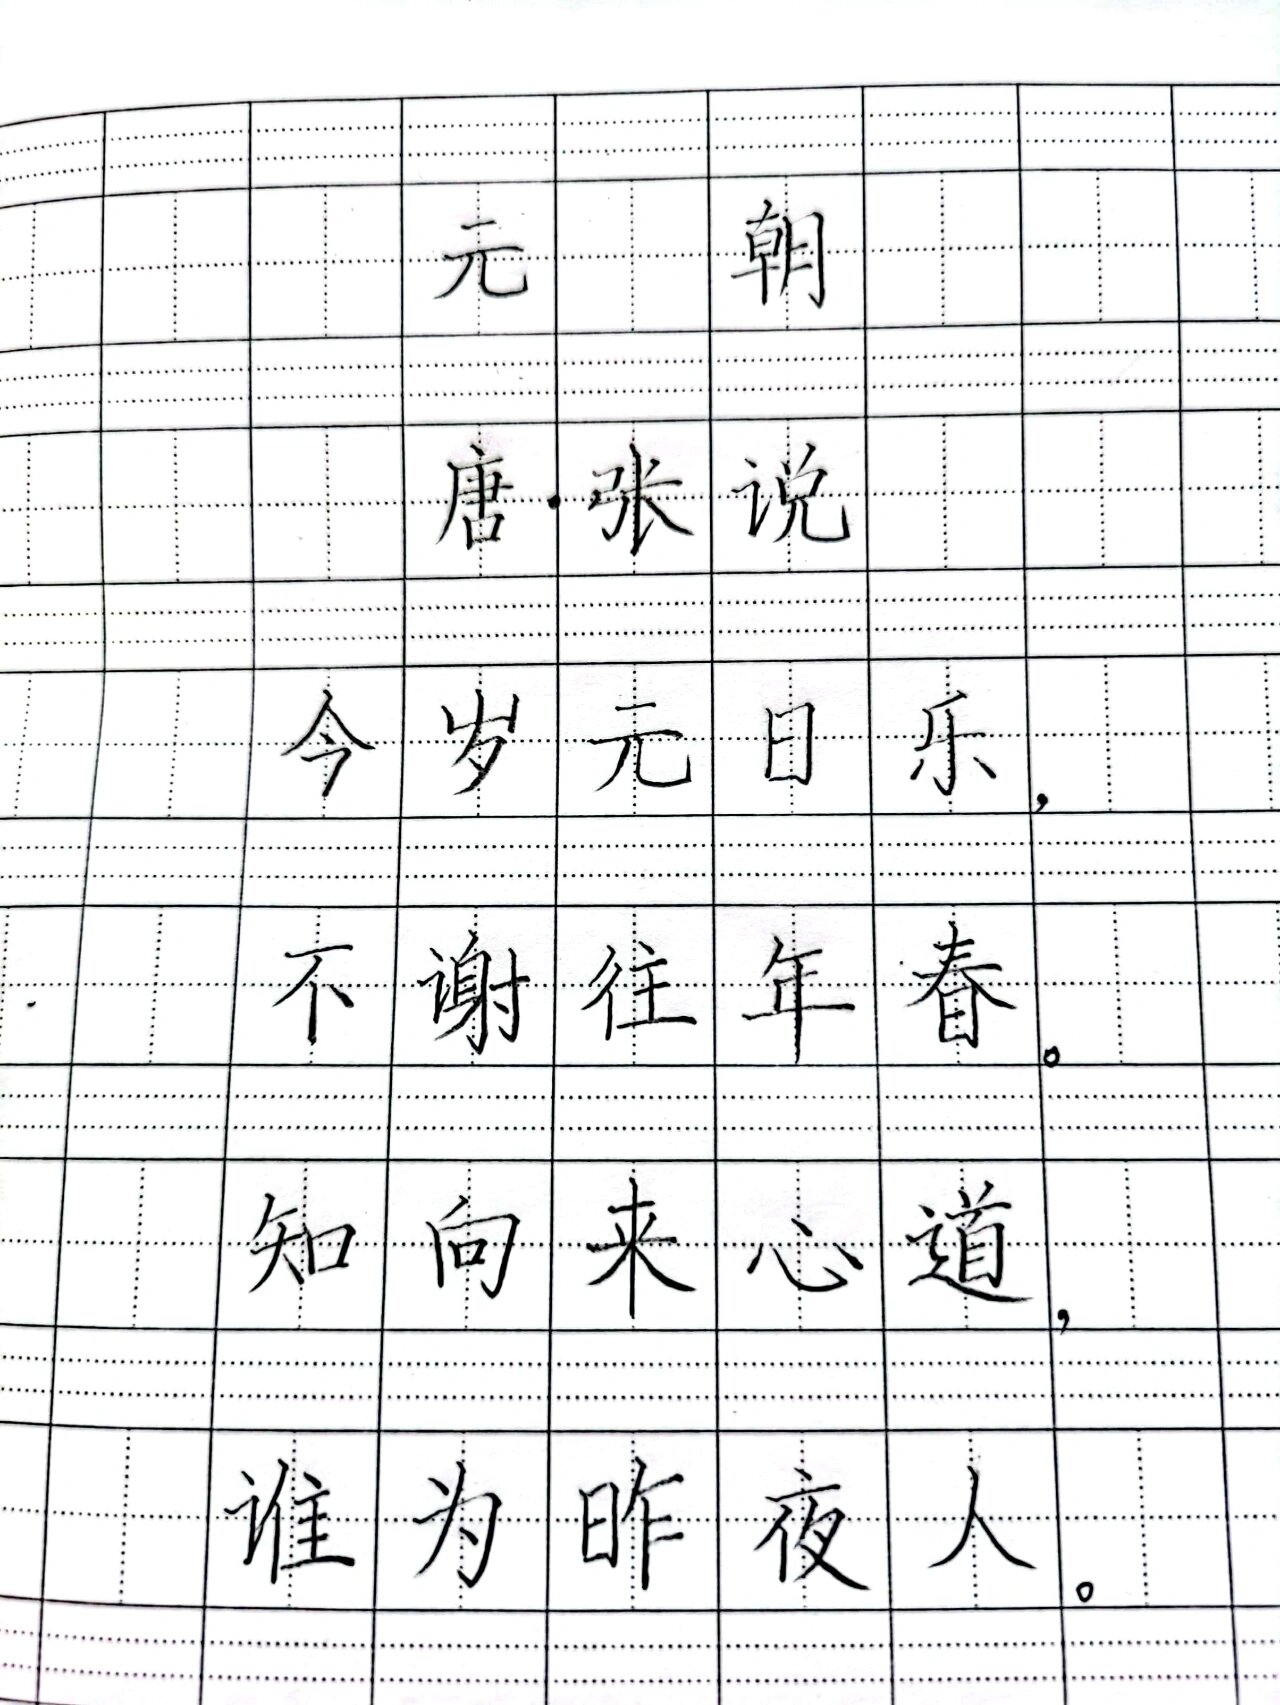 元 朝
唐·张说
今岁元日乐，
不谢往年春。
知向来心道，
谁为昨夜人。